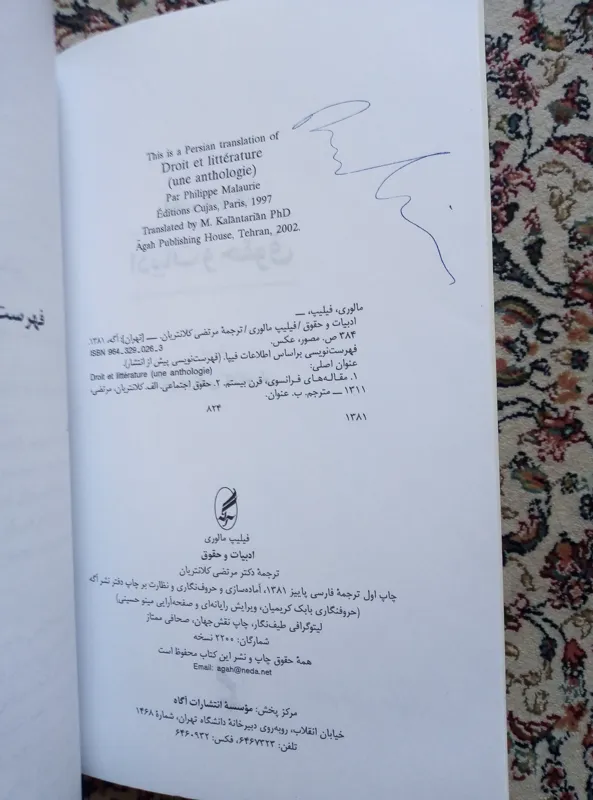 This is a Persian translation of
Droit et littérature
(une anthologie)
Par Philippe Malaurie
Éditions Cujas, Paris, 1997
Translated by M. Kalāntariān PhD
Āgah Publishing House, Tehran, 2002.
فهرست
مالوری، فیلیپ، ــ
ادبیات و حقوق / فیلیپ مالوری / ترجمهٔ مرتضی کلانتریان. ــ [تهران]: آگه، ۱۳۸۱.
۳۸۴ ص. مصور، عکس.
ISBN 964_329_026_3
فهرست‌نویسی براساس اطلاعات فیپا. (فهرست‌نویسی پیش از انتشار).
عنوان اصلی:
Droit et littérature (une anthologie)
۱. مقاله‌های فرانسوی، قرن بیستم. ۲. حقوق اجتماعی. الف. کلانتریان، مرتضی،
۱۳۱۱ ــ مترجم. ب. عنوان.
۸۲۴
۱۳۸۱
آگه
فیلیپ مالوری
ادبیات و حقوق
ترجمهٔ دکتر مرتضی کلانتریان
چاپ اول ترجمهٔ فارسی پاییز ۱۳۸۱، آماده‌سازی و حروف‌نگاری و نظارت بر چاپ دفتر نشر آگه
(حروفنگاری بابک کریمیان، ویرایش رایانه‌ای و صفحه‌آرایی مینو حسینی)
لیتوگرافی طیف‌نگار، چاپ نقش‌جهان، صحافی ممتاز
شمارگان: ۲۲۰۰ نسخه
همهٔ حقوق چاپ و نشر این کتاب محفوظ است
Email: agah@neda.net
مرکز پخش: مؤسسهٔ انتشارات آگاه
خیابان انقلاب، روبه‌روی دبیرخانهٔ دانشگاه تهران، شمارهٔ ۱۴۶۸
تلفن: ۶۴۶۷۳۲۳، فکس: ۶۴۶۰۹۳۲